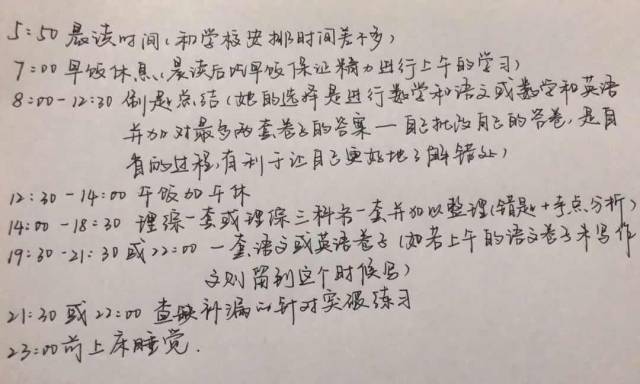 5:50 晨读时间(和学校安排时间差不多)
7:00 早饭休息(晨读后吃早饭保证精力进行上午的学习)
8:00-12:30 刷题总结(她的选择是进行数学和语文或数学和英语
并加对最多两套卷子的答案—自己批改自己的答卷,是自
省的过程,有利于让自己更好地了解错处)
12:30-14:00 午饭加午休
14:00-18:30 理综一套或理综三科各一套并加以整理(错题+考点分析)
19:30-21:30或22:00 一套语文或英语卷子(如若上午的语文卷子未写作
文则留到这个时候写)
21:30或22:00 查缺补漏以针对突破练习
23:00前上床睡觉.